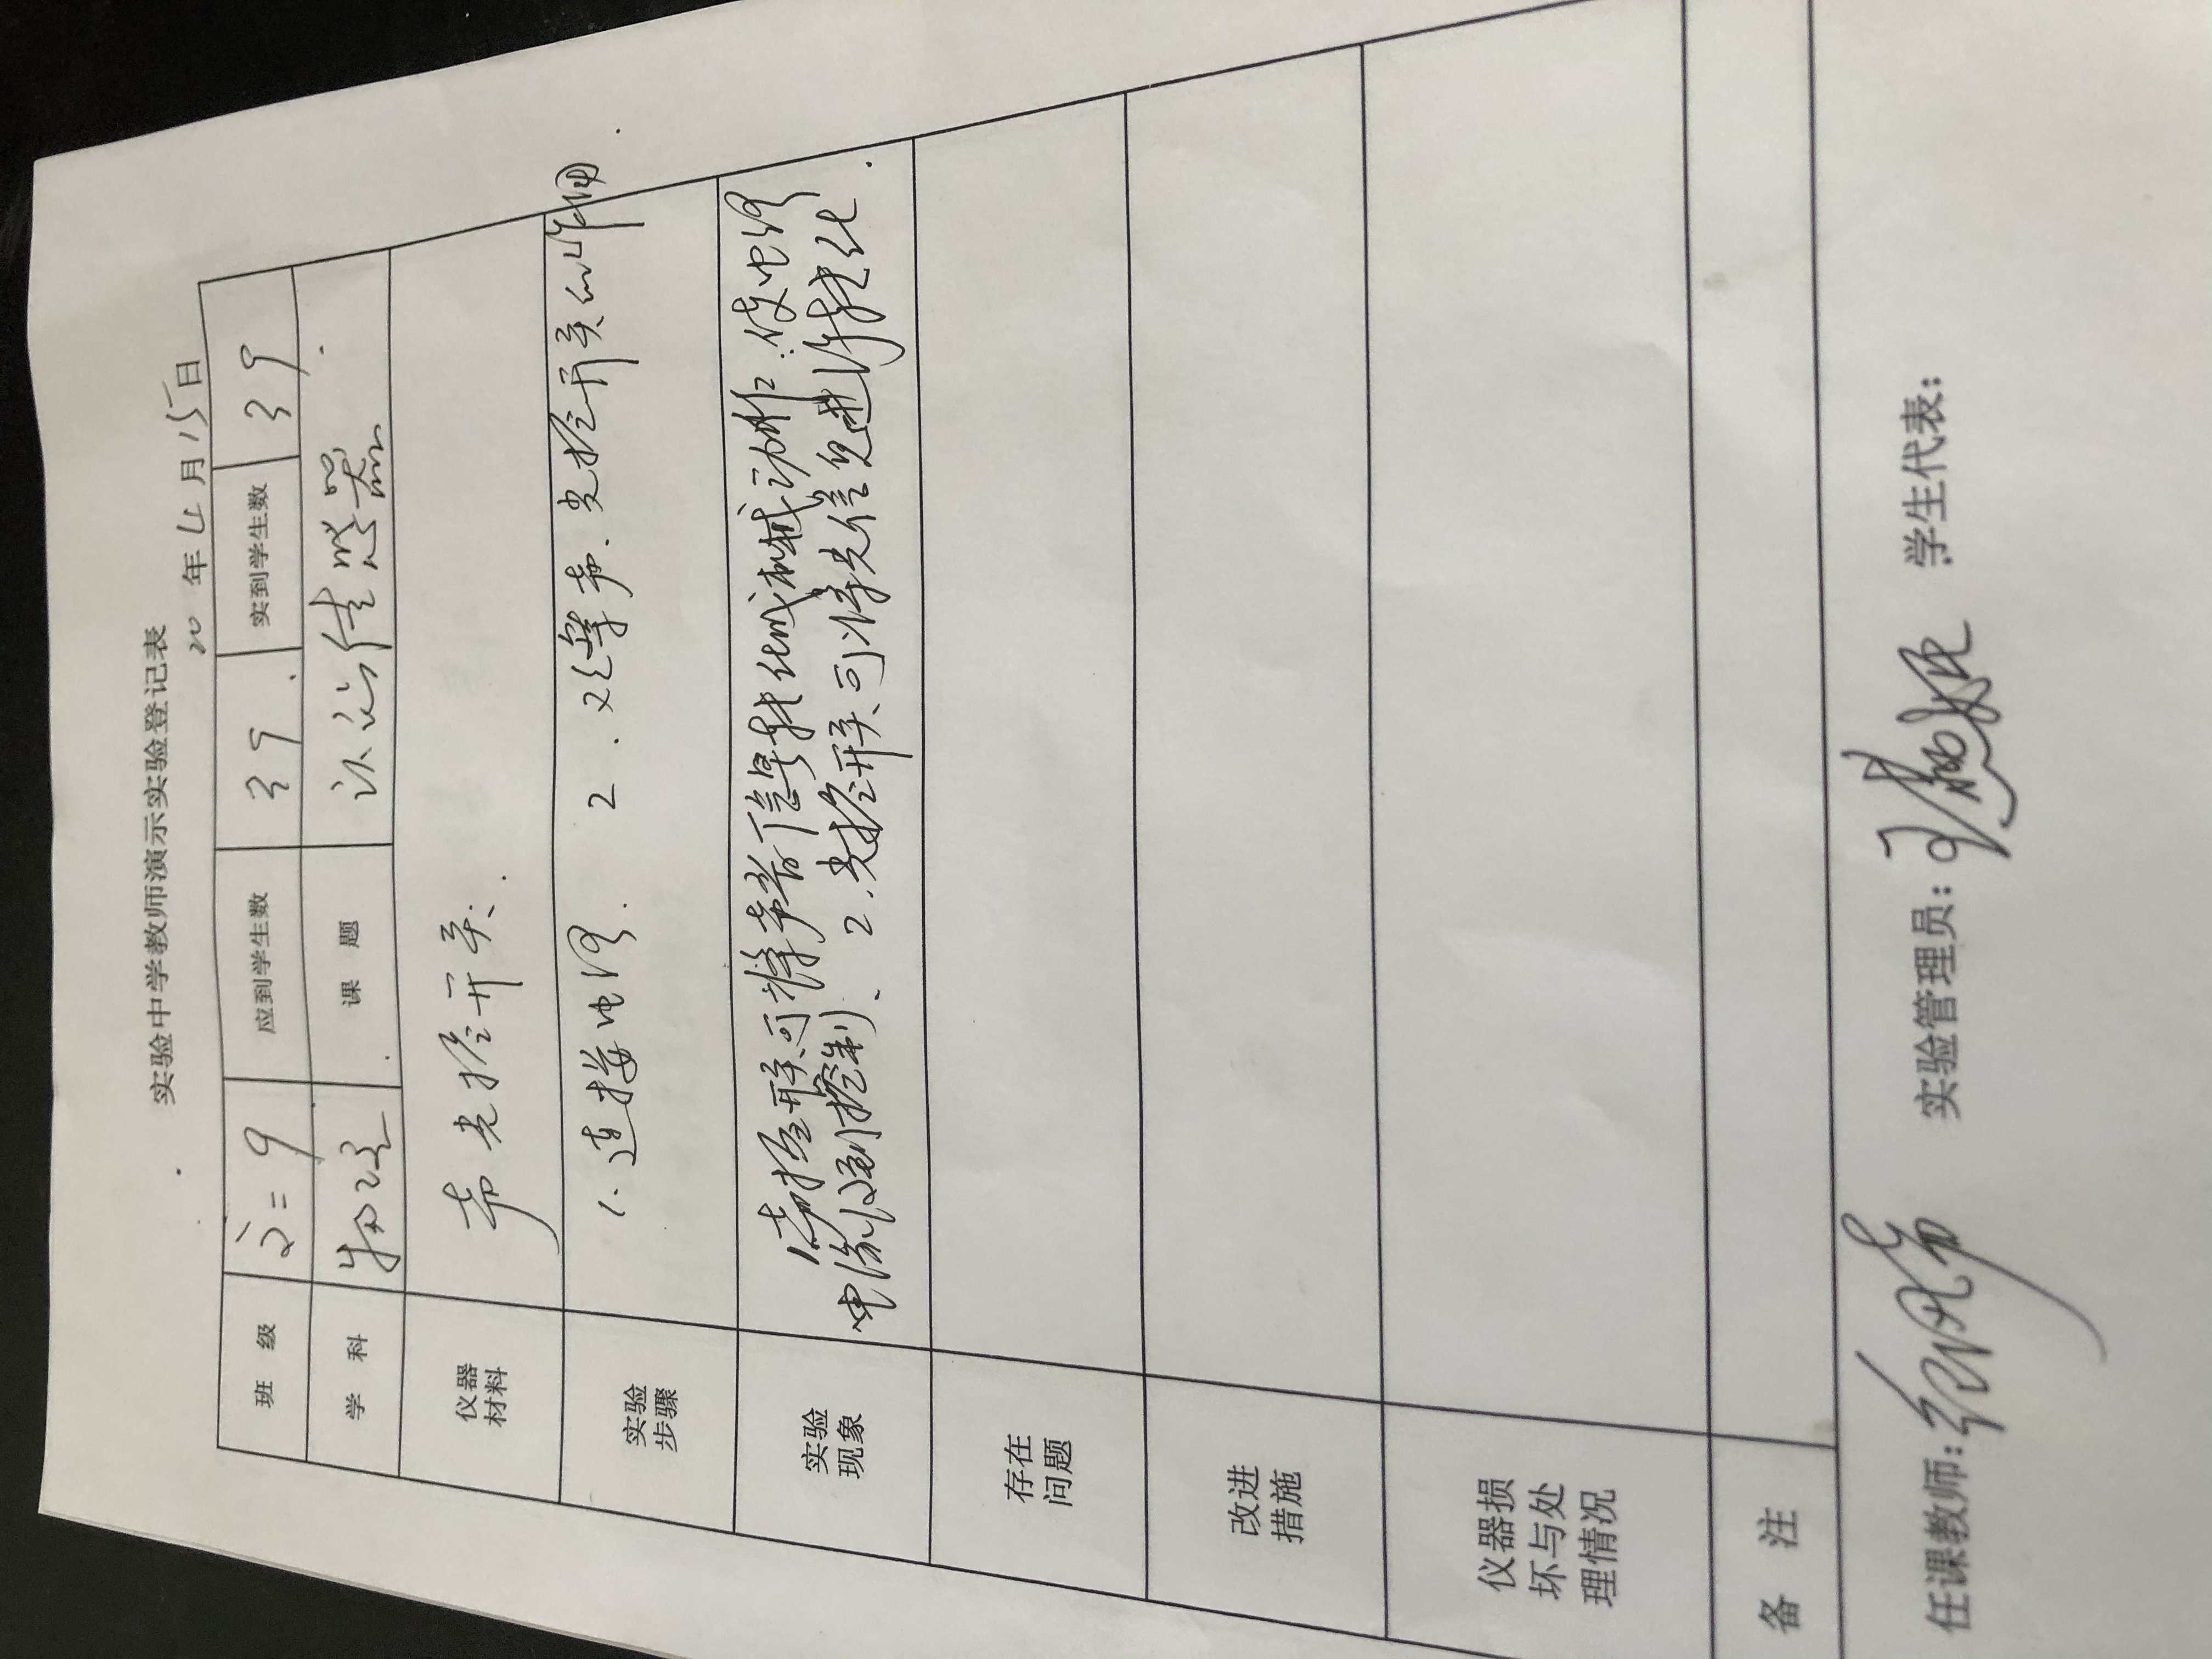 实验中学教师演示实验登记表
20 年 4 月 15 日
班 级 高二9 应到学生数 39 实到学生数 39
学 科 物理 课 题 认识传感器
仪器材料 声光控开关.
实验步骤 1.连接电路. 2.观察声、光控开关的作用.
实验现象 1.声控开关可将声音信号转化成机械动作.使电路
中流到控制、2.光控开关可将光信息进行转化.
存在问题
改进措施
仪器损坏与处理情况
备 注
任课教师: 实验管理员: 学生代表: